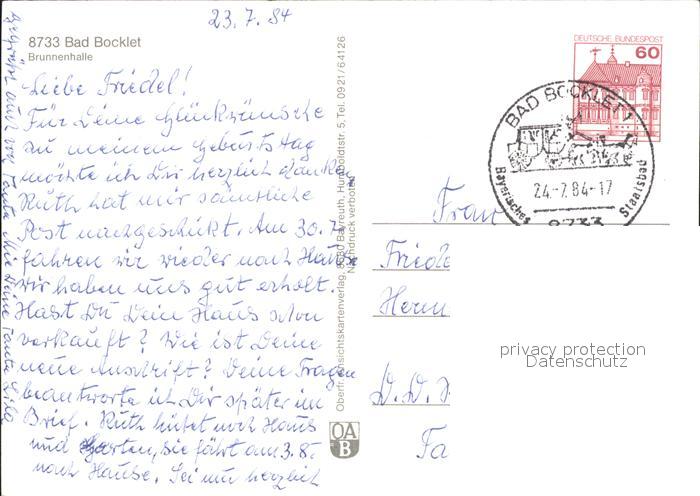 23.7.84
8733 Bad Bocklet
Brunnenhalle
Liebe Friedel!
Für Deine Glückwünsche
zu meinem Geburtstag
möchte ich Dir herzlich danken
Ruth hat mir sämtliche
Post nachgeschickt. Am 30.7.
fahren wir wieder nach Hause
wir haben uns gut erholt.
Hast Du Dein Haus schon
verkauft? Wie ist Deine
neue Anschrift? Deine Fragen
beantworte ich Dir später im
Brief. Ruth hütet noch Haus
und Garten, sie fährt am 3.8.
nach Hause. Sei nun herzlich
gegrüßt auch von Tante Deine Tante
Oberfr. Ansichtskartenverlag, 8580 Bayreuth, Humboldtstr. 5, Tel. 0921/64126
Nachdruck verboten
OA
B
DEUTSCHE BUNDESPOST
60
BAD BOCKLET
24.-7.84-17
Bayerisches Staatsbad
8733
Frau
Friede
Herm
D.D.
Fa
privacy protection
Datenschutz